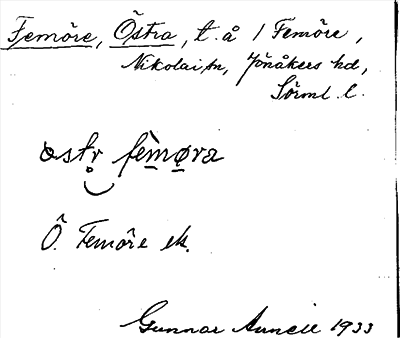 Femöre, Östra, t. å / Femöre,
Nikolai sn, Jönåkers hd,
Sörml. l.
ostr femøra
Ö. Femöre ek.
Gunnar 1933